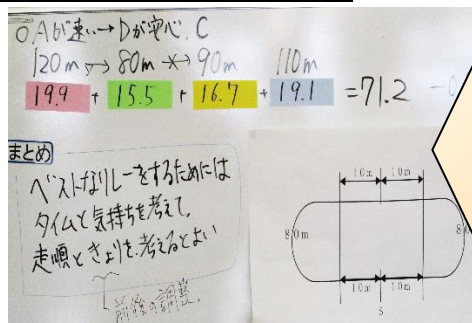 ○Aが速い→Dが安心、C
120m → 80m → 90m 110m
19.9 + 15.5 + 16.7 + 19.1 = 71.2
まとめ
ベストなリレーをするためには
タイムと気持ちを考えて、
走順ときょりを考えるとよい
前後の調整。
10m 10m
80m 80m
10m 10m
S